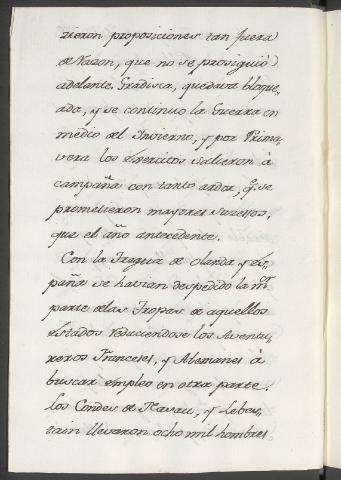 zieron proposiciones tan fuera
de Razon, que no se prosiguiò
adelante. Gradisca, quedava bloque,,
ada, y se continuo la Guerra en
medio del Invierno, y por Prima,,
vera los Exercitos salieron à
campaña con tanto ardor, q.e se
prometieron mayores sucessos,
que el año antecedente.
Con la Tregua de Olanda y Es,,
paña se havian despedido la m.or
parte de las Tropas de aquellos
Estados reduciendose los Aventu,,
reros Franceses, y Alemanes à
buscar empleo en otra parte.
Los Condes de Nasau, y Lebes,,
tain llevaron ocho mil hombres